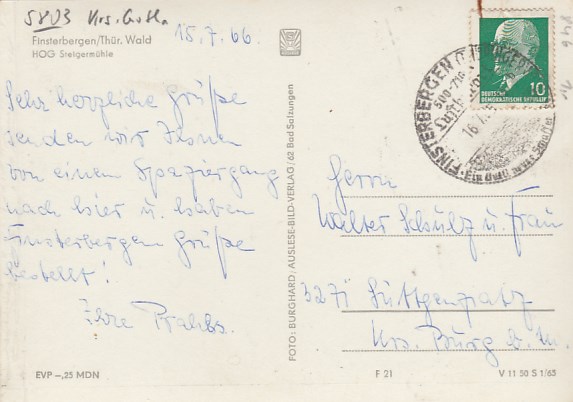 5803 Krs. Gotha
Finsterbergen/Thür. Wald
HOG Steigermühle
15.7.66.
Sehr herzliche Grüße
senden wir Ihnen
von einem Spaziergang
nach hier u. haben
Finsterbergen Grüße
bestellt!
Ihre
EVP –,25 MDN
FOTO: BURGHARD/AUSLESE-BILD-VERLAG/62 Bad Salzungen
FINSTERBERGEN
500-710
Luftkurort
16.7.
10
DEUTSCHE
DEMOKRATISCHE REPUBLIK
Herrn
Walter Schulz u. Frau
3271
Krs. Burg b. M.
F 21
V 11 50 S 1/65